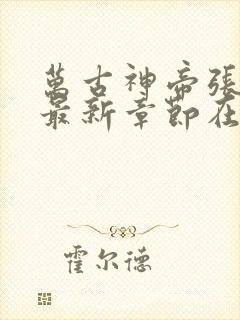 萬古神帝張
最新章節在
霍尔德